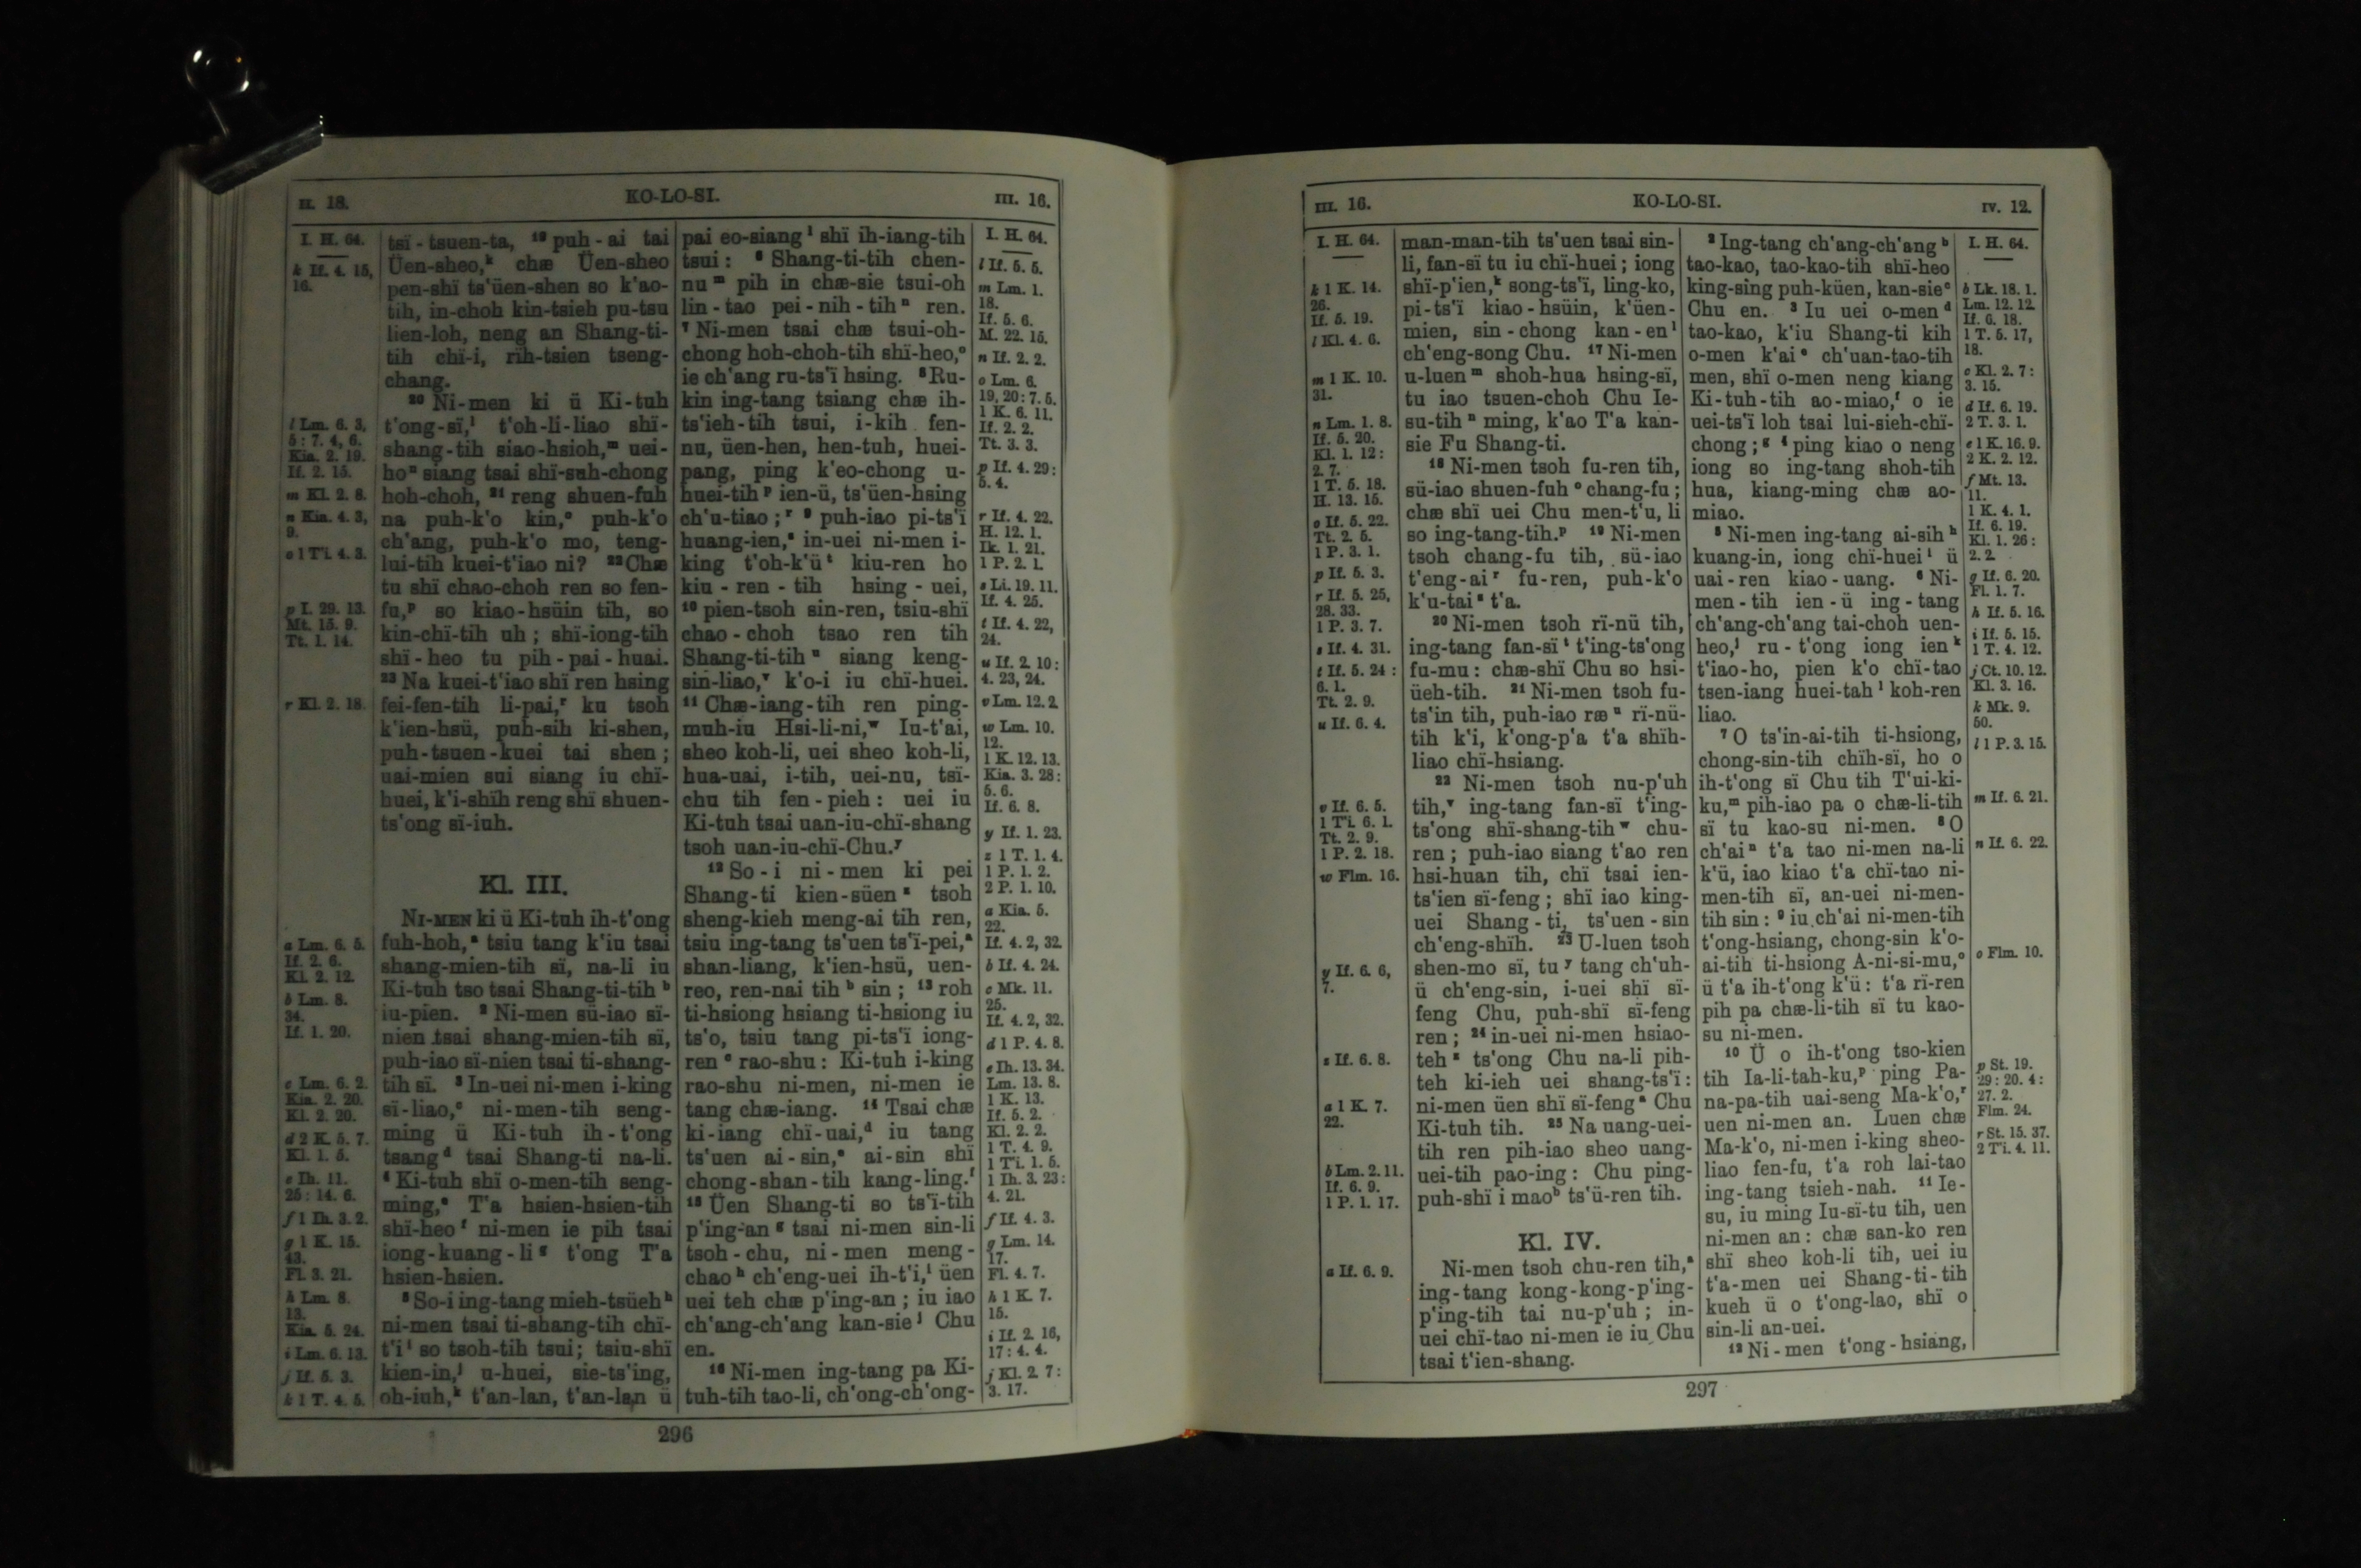 II. 18.
KO-LO-SI.
III. 16.
I. H. 64.
k If. 4. 15,
16.
l Lm. 6. 3,
5 : 7. 4, 6.
Kia. 2. 19.
If. 2. 15.
m Kl. 2. 8.
n Kia. 4. 3,
9.
o 1 Ti. 4. 3.
p I. 29. 13.
Mt. 15. 9.
Tt. 1. 14.
r Kl. 2. 18.
a Lm. 6. 5.
If. 2. 6.
Kl. 2. 12.
b Lm. 8.
34.
If. 1. 20.
c Lm. 6. 2.
Kia. 2. 20.
Kl. 2. 20.
d 2 K. 5. 7.
Kl. 1. 5.
e Ih. 11.
25 : 14. 6.
f 1 Ih. 3. 2.
g 1 K. 15.
43.
Fl. 3. 21.
h Lm. 8.
13.
Kia. 5. 24.
i Lm. 6. 13.
j If. 5. 3.
k 1 T. 4. 5.
tsï-tsuen-ta, ¹⁹ puh-ai tai
Üen-sheo,ᵏ chæ Üen-sheo
pen-shï ts'üen-shen so k'ao-
tih, in-choh kin-tsieh pu-tsu
lien-loh, neng an Shang-ti-
tih chï-i, rïh-tsien tseng-
chang.
²⁰ Ni-men ki ü Ki-tuh
t'ong-sï,ˡ t'oh-li-liao shï-
shang-tih siao-hsioh,ᵐ uei-
hoⁿ siang tsai shï-suh-chong
hoh-choh, ²¹ reng shuen-fuh
na puh-k'o kin,ᵒ puh-k'o
ch'ang, puh-k'o mo, teng-
lui-tih kuei-t'iao ni? ²²Chæ
tu shï chao-choh ren so fen-
fu,ᵖ so kiao-hsüin tih, so
kin-chï-tih uh; shï-iong-tih
shï-heo tu pih-pai-huai.
²³ Na kuei-t'iao shï ren hsing
fei-fen-tih li-pai,ʳ ku tsoh
k'ien-hsü, puh-sih ki-shen,
puh-tsuen-kuei tai shen;
uai-mien sui siang iu chï-
huei, k'i-shïh reng shï shuen-
ts'ong sï-iuh.
Kl. III.
NI-MEN ki ü Ki-tuh ih-t'ong
fuh-hoh,ᵃ tsiu tang k'iu tsai
shang-mien-tih sï, na-li iu
Ki-tuh tso tsai Shang-ti-tihᵇ
iu-pien. ² Ni-men sü-iao sï-
nien tsai shang-mien-tih sï,
puh-iao sï-nien tsai ti-shang-
tih sï. ³ In-uei ni-men i-king
sï-liao,ᶜ ni-men-tih seng-
ming ü Ki-tuh ih-t'ong
tsangᵈ tsai Shang-ti na-li.
⁴ Ki-tuh shï o-men-tih seng-
ming,ᵉ T'a hsien-hsien-tih
shï-heoᶠ ni-men ie pih tsai
iong-kuang-liᵍ t'ong T'a
hsien-hsien.
⁵ So-i ing-tang mieh-tsüehʰ
ni-men tsai ti-shang-tih chï-
t'iⁱ so tsoh-tih tsui; tsiu-shï
kien-in,ʲ u-huei, sie-ts'ing,
oh-iuh,ᵏ t'an-lan, t'an-lan ü
pai eo-siangˡ shï ih-iang-tih
tsui: ⁶ Shang-ti-tih chen-
nuᵐ pih in chæ-sie tsui-oh
lin-tao pei-nih-tihⁿ ren.
⁷ Ni-men tsai chæ tsui-oh-
chong hoh-choh-tih shï-heo,ᵒ
ie ch'ang ru-ts'ï hsing. ⁸Ru-
kin ing-tang tsiang chæ ih-
ts'ieh-tih tsui, i-kih fen-
nu, üen-hen, hen-tuh, huei-
pang, ping k'eo-chong u-
huei-tihᵖ ien-ü, ts'üen-hsing
ch'u-tiao;ʳ ⁹ puh-iao pi-ts'ï
huang-ien,ˢ in-uei ni-men i-
king t'oh-k'üᵗ kiu-ren ho
kiu-ren-tih hsing-uei,
¹⁰ pien-tsoh sin-ren, tsiu-shï
chao-choh tsao ren tih
Shang-ti-tihᵘ siang keng-
sin-liao,ᵛ k'o-i iu chï-huei.
¹¹ Chæ-iang-tih ren ping-
muh-iu Hsi-li-ni,ʷ Iu-t'ai,
sheo koh-li, uei sheo koh-li,
hua-uai, i-tih, uei-nu, tsï-
chu tih fen-pieh: uei iu
Ki-tuh tsai uan-iu-chï-shang
tsoh uan-iu-chï-Chu.ʸ
¹² So-i ni-men ki pei
Shang-ti kien-süenᶻ tsoh
sheng-kieh meng-ai tih ren,
tsiu ing-tang ts'uen ts'ï-pei,ᵃ
shan-liang, k'ien-hsü, uen-
reo, ren-nai tihᵇ sin; ¹³ roh
ti-hsiong hsiang ti-hsiong iu
ts'o, tsiu tang pi-ts'ï iong-
renᶜ rao-shu: Ki-tuh i-king
rao-shu ni-men, ni-men ie
tang chæ-iang. ¹⁴ Tsai chæ
ki-iang chï-uai,ᵈ iu tang
ts'uen ai-sin,ᵉ ai-sin shï
chong-shan-tih kang-ling.ᶠ
¹⁵ Üen Shang-ti so ts'ï-tih
p'ing-anᵍ tsai ni-men sin-li
tsoh-chu, ni-men meng-
chaoʰ ch'eng-uei ih-t'i,ⁱ üen
uei teh chæ p'ing-an; iu iao
ch'ang-ch'ang kan-sieʲ Chu
en.
¹⁶ Ni-men ing-tang pa Ki-
tuh-tih tao-li, ch'ong-ch'ong-
I. H. 64.
l If. 5. 5.
m Lm. 1.
18.
If. 5. 6.
M. 22. 15.
n If. 2. 2.
o Lm. 6.
19, 20 : 7. 5.
1 K. 6. 11.
If. 2. 2.
Tt. 3. 3.
p If. 4. 29 :
5. 4.
r If. 4. 22.
H. 12. 1.
Ik. 1. 21.
1 P. 2. 1.
s Li. 19. 11.
If. 4. 25.
t If. 4. 22,
24.
u If. 2. 10 :
4. 23, 24.
v Lm. 12. 2.
w Lm. 10.
12.
1 K. 12. 13.
Kia. 3. 28 :
5. 6.
If. 6. 8.
y If. 1. 23.
z 1 T. 1. 4.
1 P. 1. 2.
2 P. 1. 10.
a Kia. 5.
22.
If. 4. 2, 32.
b If. 4. 24.
c Mk. 11.
25.
If. 4. 2, 32.
d 1 P. 4. 8.
e Ih. 13. 34.
Lm. 13. 8.
1 K. 13.
If. 5. 2.
Kl. 2. 2.
1 T. 4. 9.
1 Ti. 1. 5.
1 Ih. 3. 23 :
4. 21.
f If. 4. 3.
g Lm. 14.
17.
Fl. 4. 7.
h 1 K. 7.
15.
i If. 2. 16,
17 : 4. 4.
j Kl. 2. 7 :
3. 17.
296
III. 16.
KO-LO-SI.
IV. 12.
I. H. 64.
k 1 K. 14.
26.
If. 5. 19.
l Kl. 4. 6.
m 1 K. 10.
31.
n Lm. 1. 8.
If. 5. 20.
Kl. 1. 12 :
2. 7.
1 T. 5. 18.
H. 13. 15.
o If. 5. 22.
Tt. 2. 5.
1 P. 3. 1.
p If. 5. 3.
r If. 5. 25,
28. 33.
1 P. 3. 7.
s If. 4. 31.
t If. 5. 24 :
6. 1.
Tt. 2. 9.
u If. 6. 4.
v If. 6. 5.
1 Ti. 6. 1.
Tt. 2. 9.
1 P. 2. 18.
w Flm. 16.
y If. 6. 6,
7.
z If. 6. 8.
a 1 K. 7.
22.
b Lm. 2. 11.
If. 6. 9.
1 P. 1. 17.
a If. 6. 9.
man-man-tih ts'uen tsai sin-
li, fan-sï tu iu chï-huei; iong
shï-p'ien,ᵏ song-ts'ï, ling-ko,
pi-ts'ï kiao-hsüin, k'üen-
mien, sin-chong kan-enˡ
ch'eng-song Chu. ¹⁷ Ni-men
u-luenᵐ shoh-hua hsing-sï,
tu iao tsuen-choh Chu Ie-
su-tihⁿ ming, k'ao T'a kan-
sie Fu Shang-ti.
¹⁸ Ni-men tsoh fu-ren tih,
sü-iao shuen-fuhᵒ chang-fu;
chæ shï uei Chu men-t'u, li
so ing-tang-tih.ᵖ ¹⁹ Ni-men
tsoh chang-fu tih, sü-iao
t'eng-aiʳ fu-ren, puh-k'o
k'u-taiˢ t'a.
²⁰ Ni-men tsoh rï-nü tih,
ing-tang fan-sïᵗ t'ing-ts'ong
fu-mu: chæ-shï Chu so hsi-
üeh-tih. ²¹ Ni-men tsoh fu-
ts'in tih, puh-iao ræᵘ rï-nü-
tih k'i, k'ong-p'a t'a shïh-
liao chï-hsiang.
²² Ni-men tsoh nu-p'uh
tih,ᵛ ing-tang fan-sï t'ing-
ts'ong shï-shang-tihʷ chu-
ren; puh-iao siang t'ao ren
hsi-huan tih, chï tsai ien-
ts'ien sï-feng; shï iao king-
uei Shang-ti, ts'uen-sin
ch'eng-shïh. ²³ U-luen tsoh
shen-mo sï, tuʸ tang ch'uh-
ü ch'eng-sin, i-uei shï sï-
feng Chu, puh-shï sï-feng
ren; ²⁴ in-uei ni-men hsiao-
tehᶻ ts'ong Chu na-li pih-
teh ki-ieh uei shang-ts'ï:
ni-men üen shï sï-fengᵃ Chu
Ki-tuh tih. ²⁵ Na uang-uei-
tih ren pih-iao sheo uang-
uei-tih pao-ing: Chu ping-
puh-shï i maoᵇ ts'ü-ren tih.
Kl. IV.
Ni-men tsoh chu-ren tih,ᵃ
ing-tang kong-kong-p'ing-
p'ing-tih tai nu-p'uh; in-
uei chï-tao ni-men ie iu Chu
tsai t'ien-shang.
² Ing-tang ch'ang-ch'angᵇ
tao-kao, tao-kao-tih shï-heo
king-sing puh-küen, kan-sieᶜ
Chu en. ³ Iu uei o-menᵈ
tao-kao, k'iu Shang-ti kih
o-men k'aiᵉ ch'uan-tao-tih
men, shï o-men neng kiang
Ki-tuh-tih ao-miao,ᶠ o ie
uei-ts'ï loh tsai lui-sieh-chï-
chong;ᵍ ⁴ ping kiao o neng
iong so ing-tang shoh-tih
hua, kiang-ming chæ ao-
miao.
⁵ Ni-men ing-tang ai-sihʰ
kuang-in, iong chï-hueiⁱ ü
uai-ren kiao-uang. ⁶ Ni-
men-tih ien-ü ing-tang
ch'ang-ch'ang tai-choh uen-
heo,ʲ ru-t'ong iong ienᵏ
t'iao-ho, pien k'o chï-tao
tsen-iang huei-tahˡ koh-ren
liao.
⁷ O ts'in-ai-tih ti-hsiong,
chong-sin-tih chïh-sï, ho o
ih-t'ong sï Chu tih T'ui-ki-
ku,ᵐ pih-iao pa o chæ-li-tih
sï tu kao-su ni-men. ⁸ O
ch'aiⁿ t'a tao ni-men na-li
k'ü, iao kiao t'a chï-tao ni-
men-tih sï, an-uei ni-men-
tih sin: ⁹ iu ch'ai ni-men-tih
t'ong-hsiang, chong-sin k'o-
ai-tih ti-hsiong A-ni-si-mu,ᵒ
ü t'a ih-t'ong k'ü: t'a rï-ren
pih pa chæ-li-tih sï tu kao-
su ni-men.
¹⁰ Ü o ih-t'ong tso-kien
tih Ia-li-tah-ku,ᵖ ping Pa-
na-pa-tih uai-seng Ma-k'o,ʳ
uen ni-men an. Luen chæ
Ma-k'o, ni-men i-king sheo-
liao fen-fu, t'a roh lai-tao
ing-tang tsieh-nah. ¹¹ Ie-
su, iu ming Iu-sï-tu tih, uen
ni-men an: chæ san-ko ren
shï sheo koh-li tih, uei iu
t'a-men uei Shang-ti-tih
kueh ü o t'ong-lao, shï o
sin-li an-uei.
¹² Ni-men t'ong-hsiang,
I. H. 64.
b Lk. 18. 1.
Lm. 12. 12.
If. 6. 18.
1 T. 5. 17,
18.
c Kl. 2. 7 :
3. 15.
d If. 6. 19.
2 T. 3. 1.
e 1 K. 16. 9.
2 K. 2. 12.
f Mt. 13.
11.
1 K. 4. 1.
If. 6. 19.
Kl. 1. 26 :
2. 2.
g If. 6. 20.
Fl. 1. 7.
h If. 5. 16.
i If. 5. 15.
1 T. 4. 12.
j Ct. 10. 12.
Kl. 3. 16.
k Mk. 9.
50.
l 1 P. 3. 15.
m If. 6. 21.
n If. 6. 22.
o Flm. 10.
p St. 19.
29 : 20. 4 :
27. 2.
Flm. 24.
r St. 15. 37.
2 Ti. 4. 11.
297